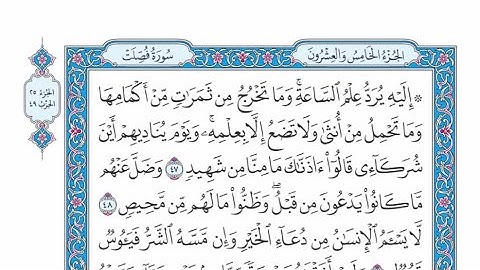 الجزء الخامس والعشرون
سورة فصلت
الجزء ٢٥
الحزب ٤٩
۞ إِلَيْهِ يُرَدُّ عِلْمُ ٱلسَّاعَةِۚ وَمَا تَخْرُجُ مِن ثَمَرَٰتٖ مِّنْ أَكْمَامِهَا
وَمَا تَحْمِلُ مِنْ أُنثَىٰ وَلَا تَضَعُ إِلَّا بِعِلْمِهِۦۚ وَيَوْمَ يُنَادِيهِمْ أَيْنَ
شُرَكَآءِي قَالُوٓاْ ءَاذَنَّٰكَ مَا مِنَّا مِن شَهِيدٖ ٤٧ وَضَلَّ عَنْهُم
مَّا كَانُواْ يَدْعُونَ مِن قَبْلُۖ وَظَنُّواْ مَا لَهُم مِّن مَّحِيصٖ ٤٨
لَّا يَسْـَٔمُ ٱلْإِنسَٰنُ مِن دُعَآءِ ٱلْخَيْرِ وَإِن مَّسَّهُ ٱلشَّرُّ فَيَـُٔوسٞ